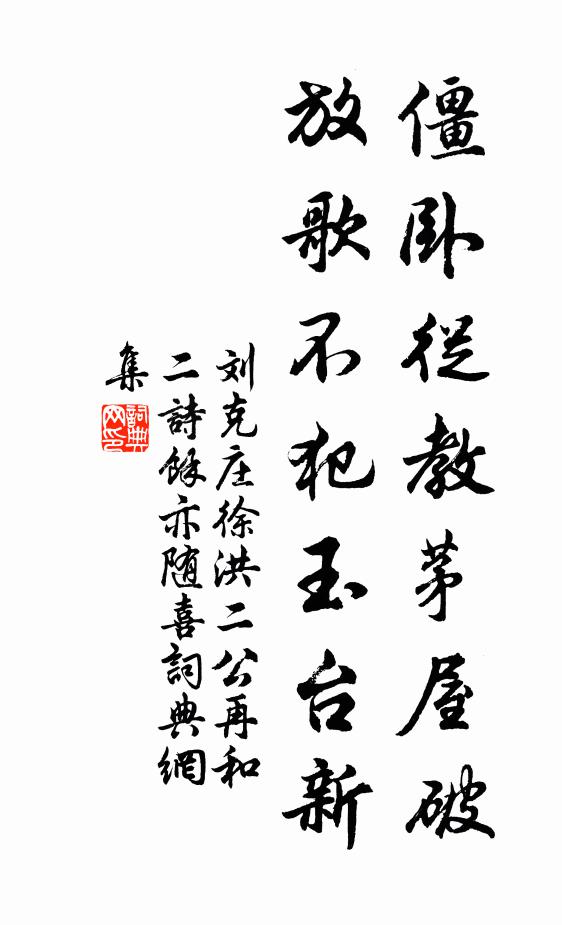 僵卧從教茅屋破
放歌不犯玉台新
刘克庄徐洪二公再和
二詩餘亦随喜詞典網
集
詞典
网印